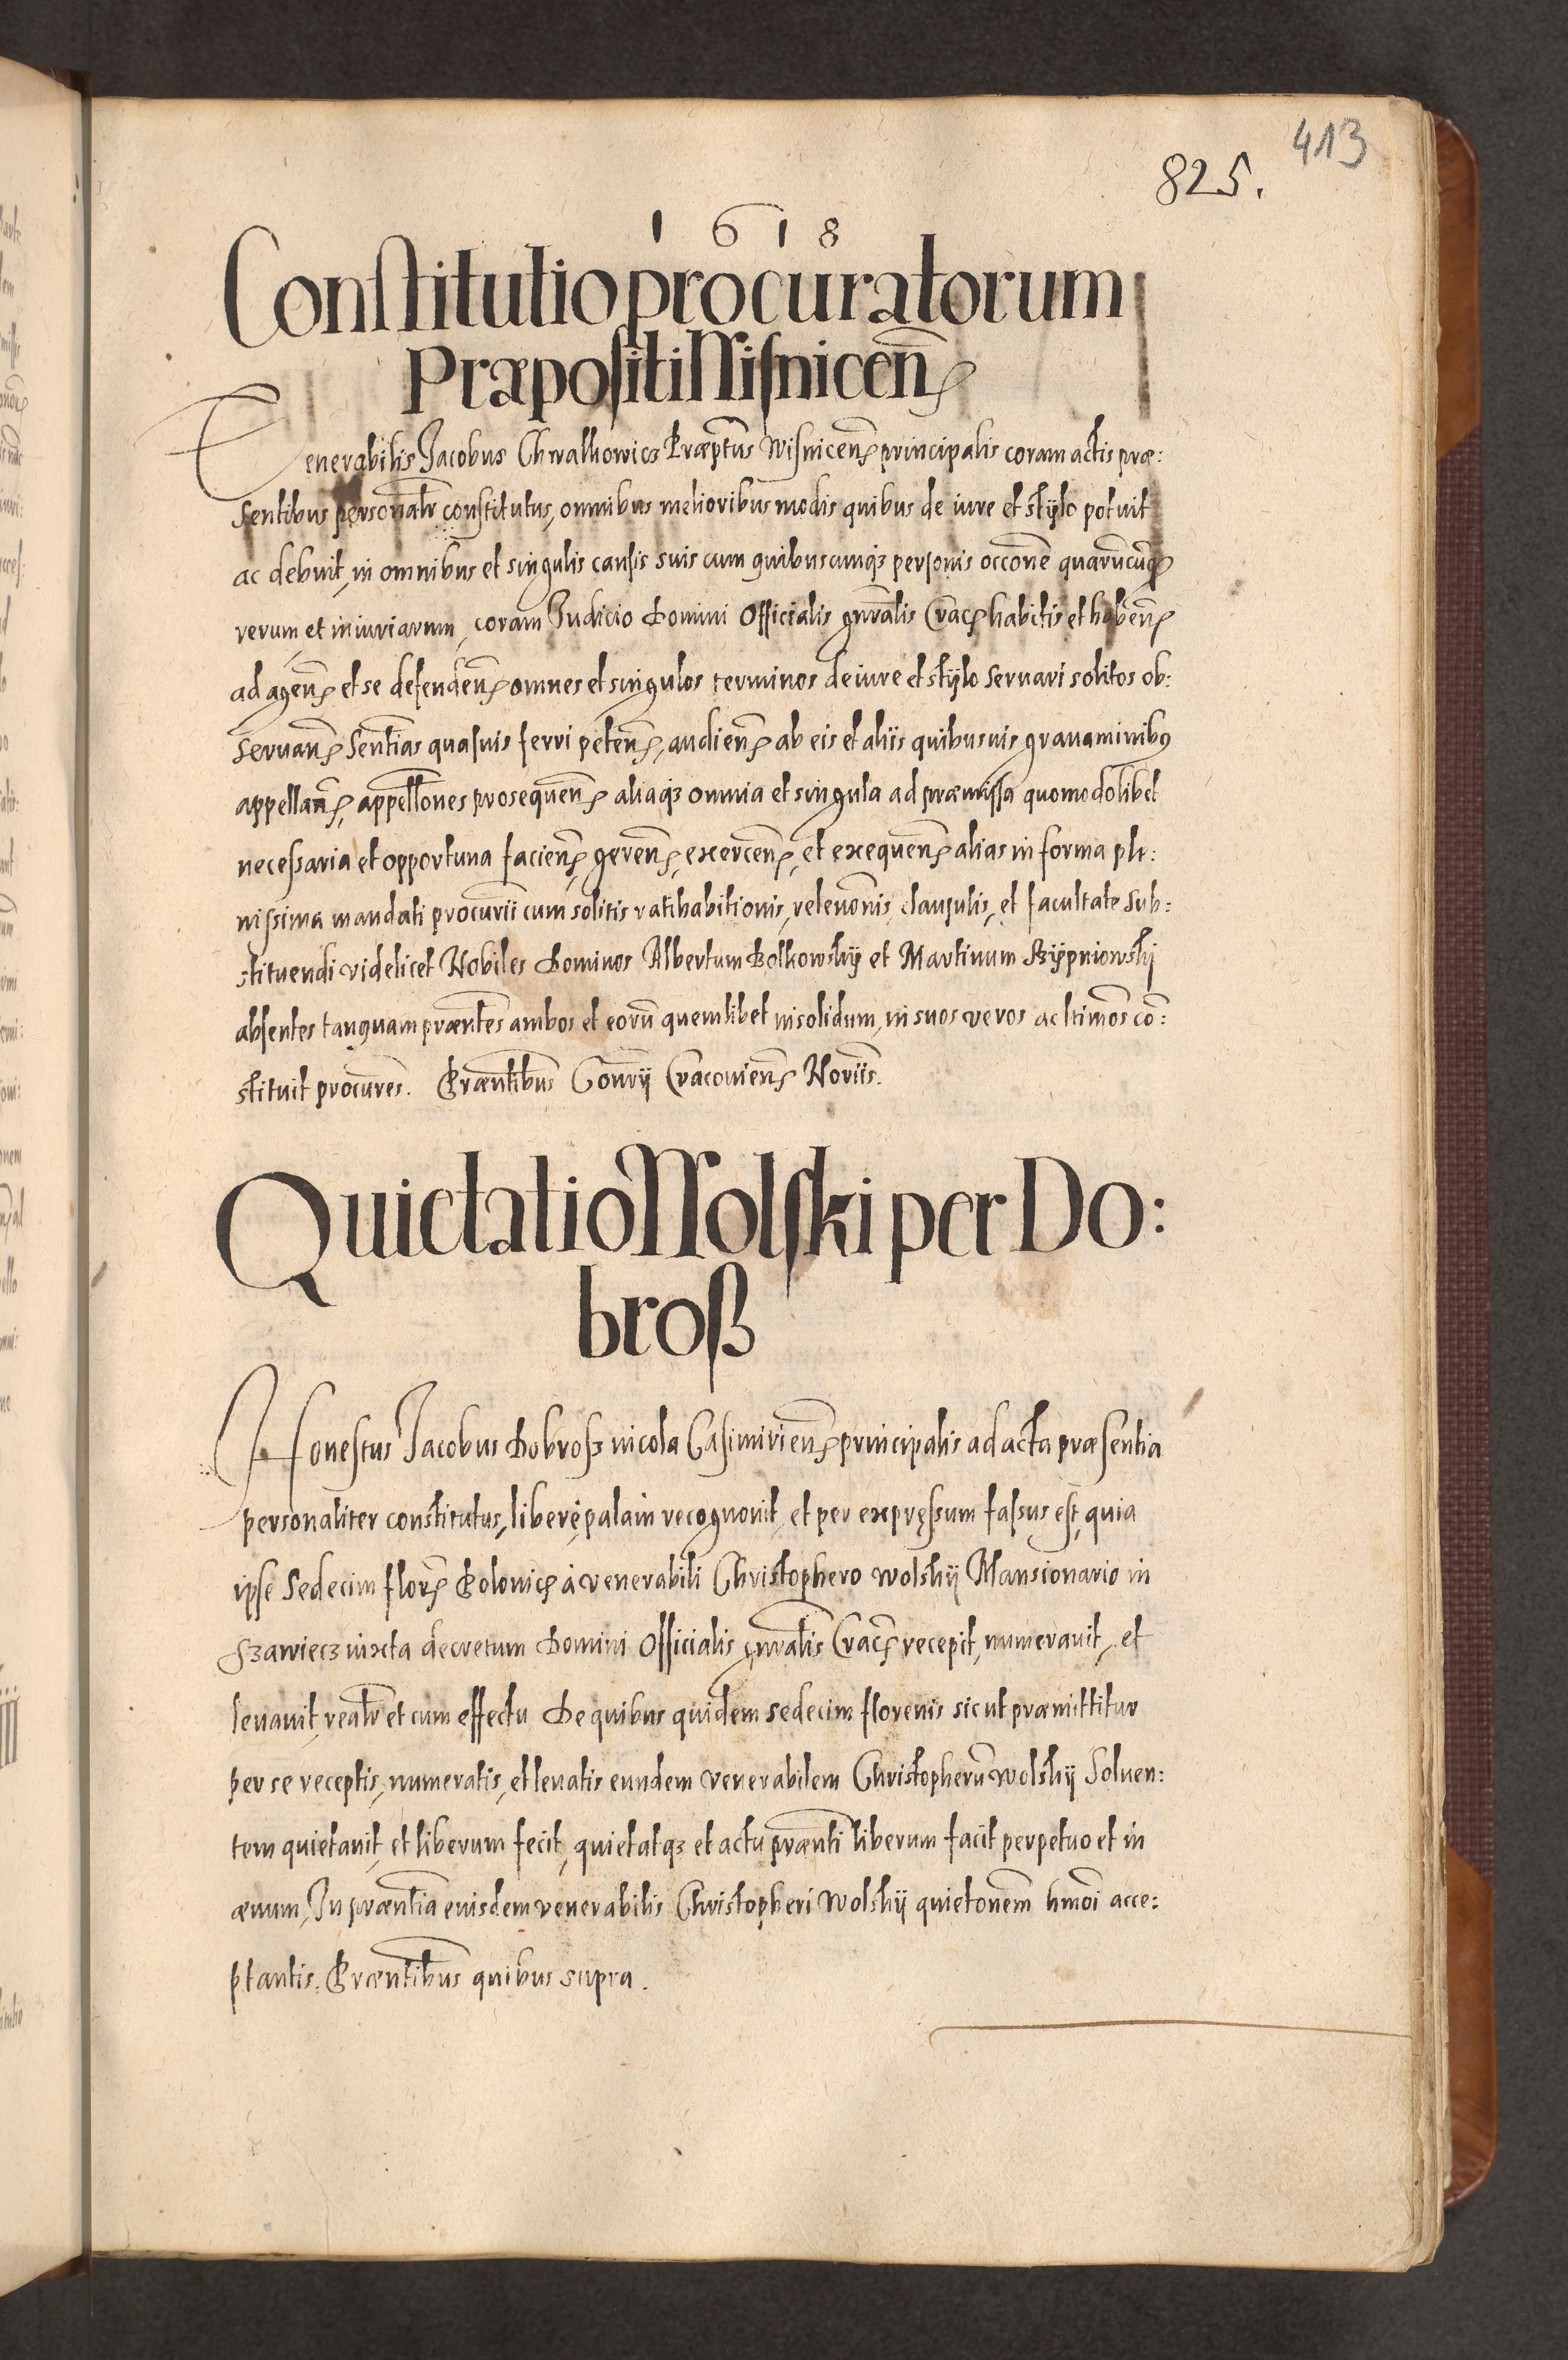 413
825.
1618
Constitutio procuratorum
Præpositi Wisnicen̄
Venerabilis Jacobus Chwalkowicz Præptus Wisnicen̄ principalis coram actis præ:
sentibus personalr constitutus, omnibus melioribus modis quibus de iure et stylo potuit
ac debuit, in omnibus et singulis causis suis cum quibuscunqȝ personis occōne quarūcunqȝ
rerum et iniuriarum, coram Judicio Domini Officialis gnralis Crac̄ habitis et haben̄
ad agen̄ et se defenden̄ omnes et singulos terminos de iure et stÿlo seruari solitos ob:
seruan̄ Sentias quasuis ferri peten̄, audien̄ ab eis et aliis quibusuis grauaminibꝰ
appellan̄, appellōnes prosequen̄ aliaqȝ omnia et singula ad præmissa quomodolibet
necessaria et opportuna facien̄, geren̄, exercen̄, et exequen̄ alias in forma ple:
nissima mandati procurii cum solitis ratihabitionis, releuōnis, clausulis, et facultate sub:
stituendi videlicet Nobiles Dominos Albertum Bolkowskÿ et Martinum Rÿpniowskÿ
absentes tanquam præntes ambos et eorū quemlibet insolidum, in suos veros ac ltimos cō:
stituit procures. Præntibus Conrÿ Cracouien̄ Noriis.
Quietatio Wolski per Do:
broß
Honestus Jacobus Dobroß incola Casimirien̄ principalis ad acta præsentia
personaliter constitutus, liberè, palam recognouit, et per expressum fassus est, quia
ipse Sedecim flor̄ Polonic̄ à venerabili Christophero Wolskÿ Mansionario in
Szawiecz iuxta decretum Domini Officialis gnralis Crac̄ recepit, numerauit, et
leuauit, realr et cum effectu De quibus quidem sedecim florenis sicut præmittitur
per se receptis, numeratis, et leuatis eundem venerabilem Christopherū Wolskÿ Soluen:
tem quietauit, et liberum fecit, quietatqȝ et actu prænti liberum facit perpetuo et in
æuum, In præntia eiusdem venerabilis Christopheri Wolskÿ quietōnem hmōi acce:
ptantis. Præntibus quibus supra.